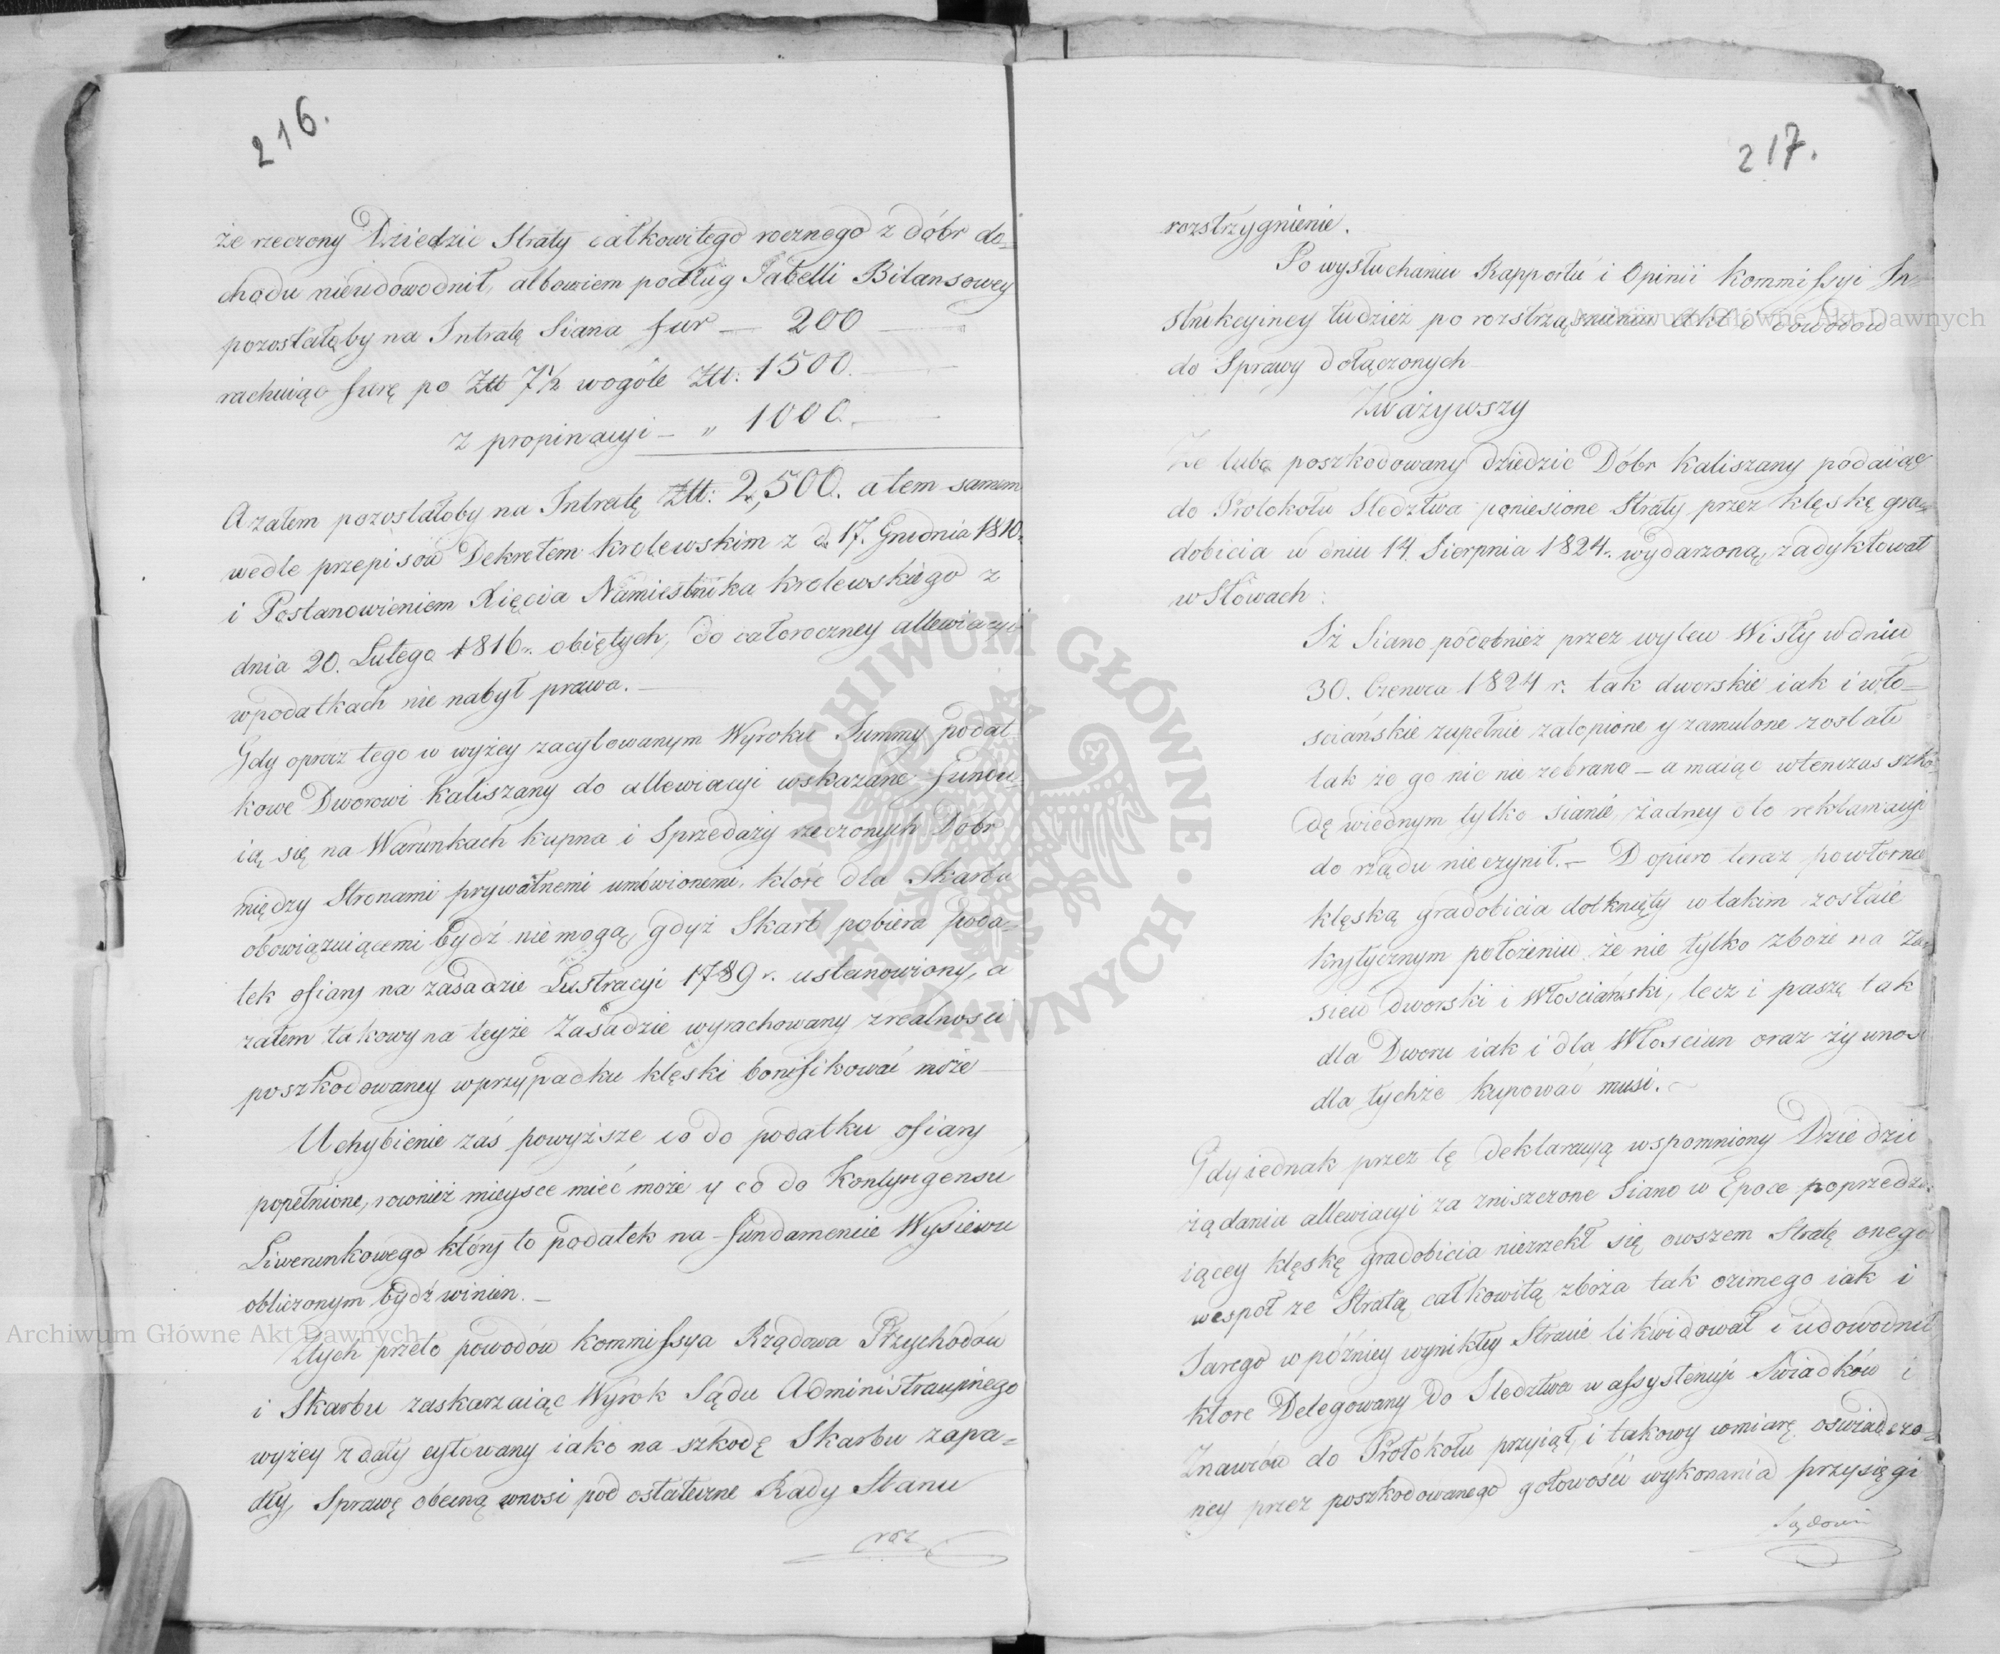 216.
że rzeczony Dziedzic Straty całkowitego rocznego z dóbr do-
chodu nieudowodnił, albowiem podług Tabelli Bilansowey
pozostałoby na Intratę Siana fur — 200
rachuiąc furę po Ztt 7½ wogóle Ztt: 1500.
z propinacyi — „ 1000.
A zatem pozostałoby na Intratę Ztt: 2,500. a tem samem
wedle przepisów Dekretem Krolewskim z d. 17. Grudnia 1810.
i Postanowieniem Xięcia Namiestnika Krolewskiego z
dnia 20. Lutego 1816 r. obiętych, do całoroczney allewiacyi
w podatkach nie nabył prawa. —
Gdy oprócz tego w wyżey zacytowanym Wyroku Summy podat
kowe Dworowi Kaliszany do allewiacyi wskazane fundu-
ią się na Warunkach kupna i Sprzedaży rzeczonych Dóbr
między Stronami prywatnemi umówionemi, które dla Skarbu
obowiązuiącemi bydź nie mogą, gdyż Skarb pobiera Poda-
tek ofiary na zasadzie Lustracyi 1789 r. ustanowiony, a
zatem takowy na teyże Zasadzie wyrachowany z realnosci
poszkodowaney w przypadku klęski bonifikować może —
Uchybienie zaś powyższe co do podatku ofiary
popełnione, rownież mieysce mieć może y co do Kontyngensu
Liwerunkowego który to podatek na fundamencie Wysiewu
obliczonym bydź winien. —
Z tych przeto powodów Kommissya Rządowa Przychodów
i Skarbu zaskarzaiąc Wyrok Sądu Administracyinego
wyżey z daty cytowany iako na szkodę Skarbu zapa-
dły, Sprawę obecną wnosi pod ostateczne Rady Stanu
roz
217.
rozstrzygnienie.
Po wysłuchaniu Rapportu i Opinii Kommissyi In-
strukcyiney tudzież po roztrząśnieniu akt i dowodów
do Sprawy dołączonych
Zważywszy
Że lubo poszkodowany dziedzic Dóbr Kaliszany podaiąc
do Protokołu Sledztwa poniesione Straty przez klęskę gra-
dobicia w dniu 14. Sierpnia 1824 r. wydarzoną, zadyktował
w Słowach:
Iż Siano podobnież przez wylew Wisły w dniu
30. Czerwca 1824 r. tak dworskie iak i wło-
sciańskie zupełnie zatopione y zamulone zostało
tak że go nic nie zebrano — a maiąc wtenczas szko
dę w iednym tylko Sianie, żadney o to reklamacyi
do rządu nie czynił. — Dopiero teraz powtorną
klęską gradobicia dotknięty w takim zostaie
krytycznym położeniu, że nie tylko zboże na Za-
siew dworski i Włościański, lecz i paszę tak
dla Dworu iak i dla Włoscian oraz żywnosć
dla tychże kupować musi. —
Gdy iednak przez tę deklaracyą wspomniony Dziedzic
żądania allewiacyi za zniszczone Siano w Epoce poprzedza-
iącey klęskę gradobicia niezrzekł się owszem Stratę onego
wespoł ze Stratą całkowitą zboża tak ozimego iak i
Jarego w późniey wynikłey Stracie likwidował i udowodnił
ktore Delegowany do Sledztwa w assystencyi Swiadków i
Znawców do Protokołu przyiął, i takowy w miarę oświadczo-
ney przez poszkodowanego gotowości wykonania przysięgi
Sądowéi
Archiwum Główne Akt Dawnych
Archiwum Główne Akt Dawnych
ARCHIWUM GŁÓWNE AKT DAWNYCH